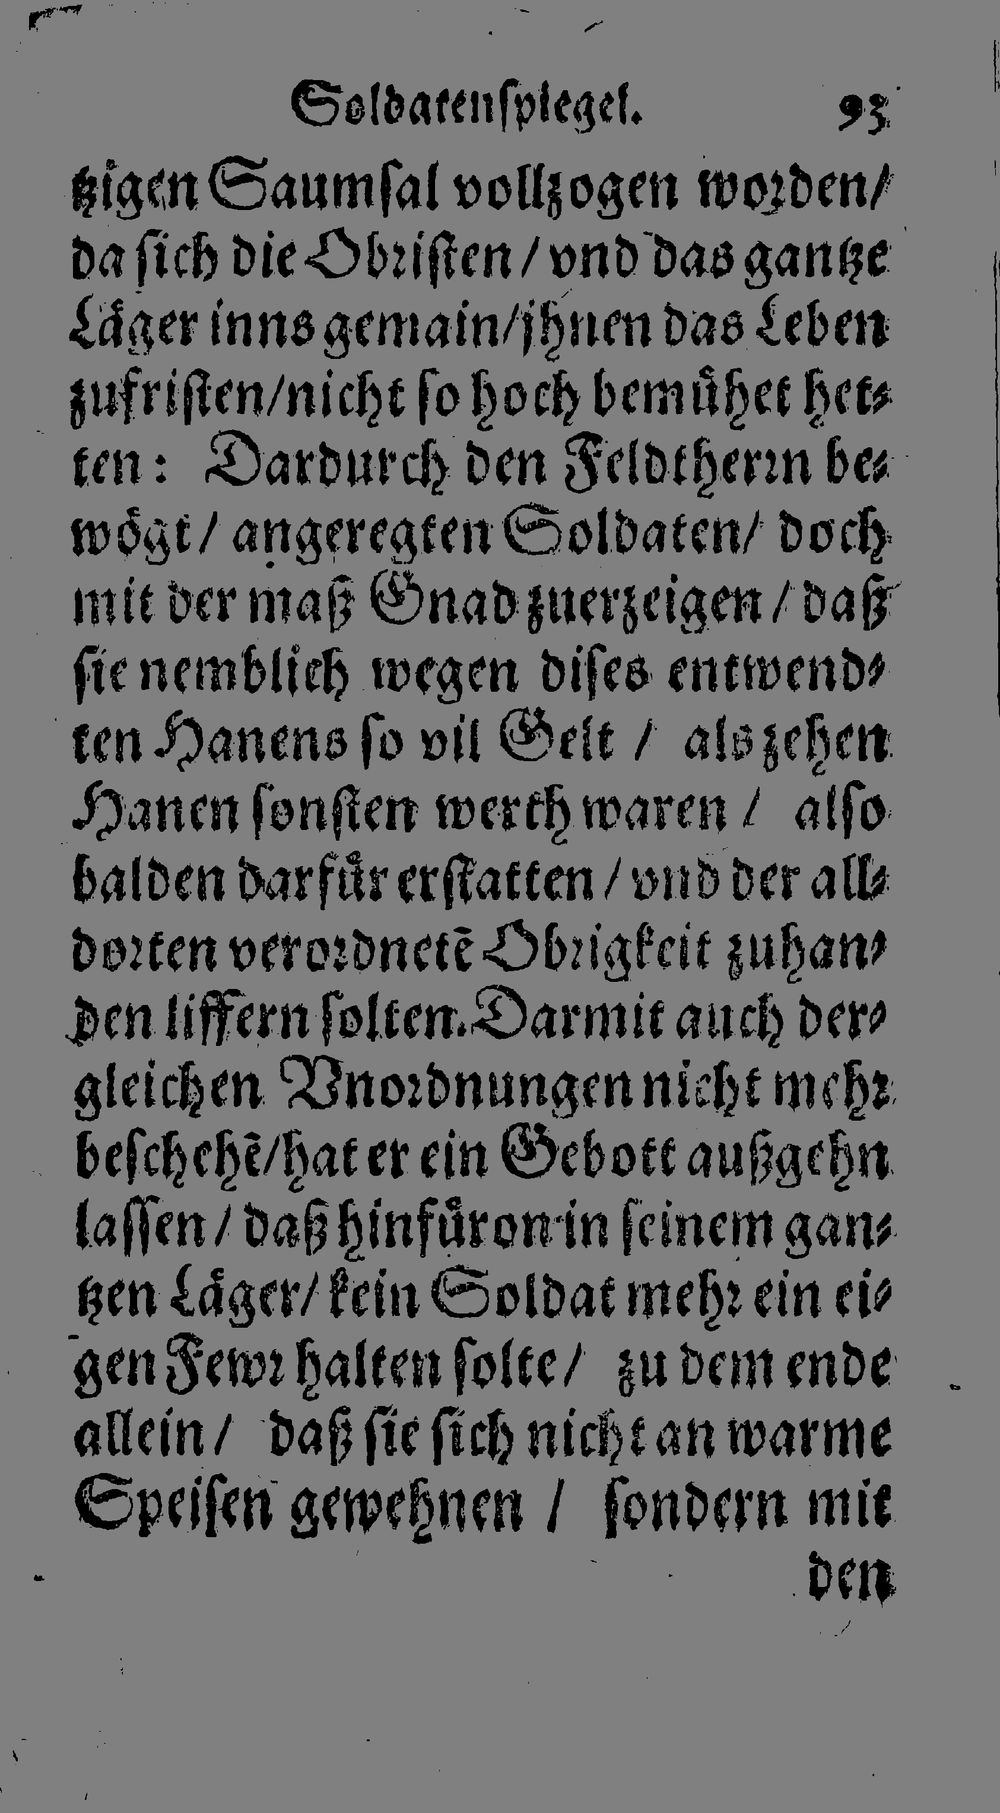 Soldatenspiegel. 93
tzigen Saumsal vollzogen worden/
da sich die Obristen / vnd das gantze
Läger inns gemain/jhnen das Leben
zufristen/nicht so hoch bemühet het-
ten: Dardurch den Feldtherrn be-
wögt / angeregten Soldaten/ doch
mit der maß Gnad zuerzeigen / daß
sie nemblich wegen dises entwend-
ten Hanens so vil Gelt / als zehen
Hanen sonsten werth waren / also
balden darfür erstatten / vnd der all-
dorten verordnetē Obrigkeit zuhan-
den liffern solten. Darmit auch der-
gleichen Vnordnungen nicht mehr
beschehē/hat er ein Gebott außgehn
lassen / daß hinfüron in seinem gan-
tzen Läger/ kein Soldat mehr ein ei-
gen Fewr halten solte / zu dem ende
allein / daß sie sich nicht an warme
Speisen gewehnen / sondern mit
den